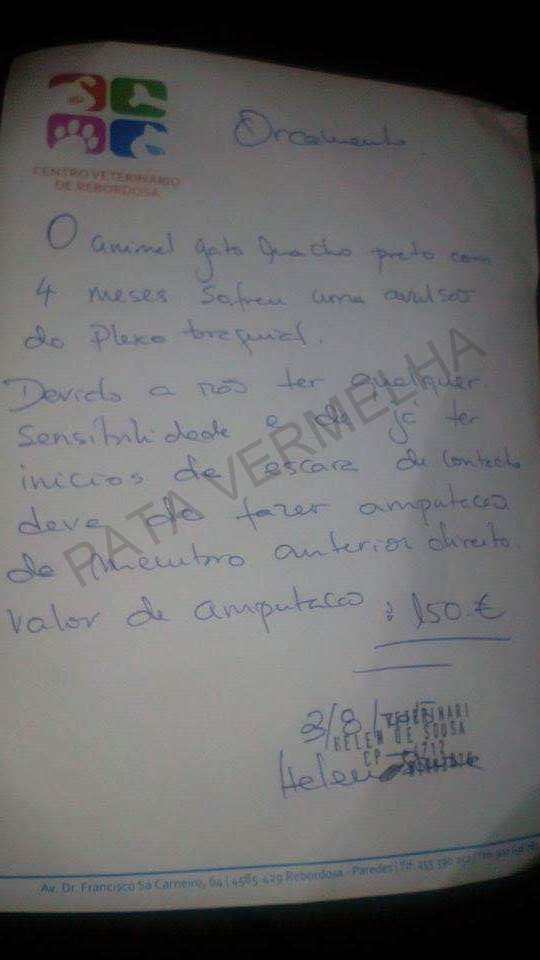 CENTRO VETERINÁRIO
DE REBORDOSA
Orcamento
O animal gato macho preto com
4 meses sofreu uma avulsão
do plexo braquial.
Devido a não ter qualquer
sensibilidade e de já ter
inicios de escara de contacto
deve de fazer amputacao
do membro anterior direito.
Valor de amputacao : 150 €
PATA VERMELHA
3/8/
VETERINARI
HELEN DE SOUSA
CP
Helen
Av. Dr. Francisco Sá Carneiro, 64 | 4585-429 Rebordosa - Paredes | Tlf: